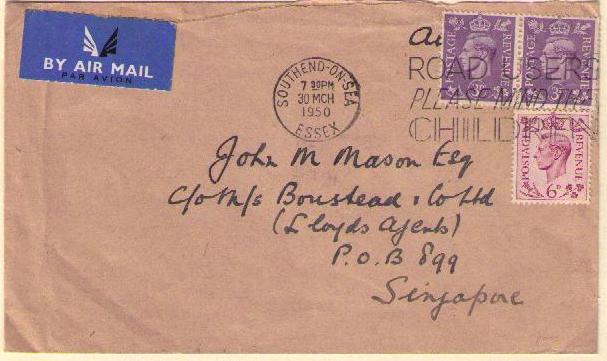 BY AIR MAIL
PAR AVION
SOUTHEND-ON-SEA
7 30PM
30 MCH
1950
ESSEX
ROAD USERS
PLEASE MIND THE
CHILDREN
POSTAGE REVENUE
3D
POSTAGE REVENUE
3D
POSTAGE REVENUE
6D
John M Mason Esq
C/o M/s Boustead & Co Ltd
(Lloyds Agents)
P.O.B 899
Singapore